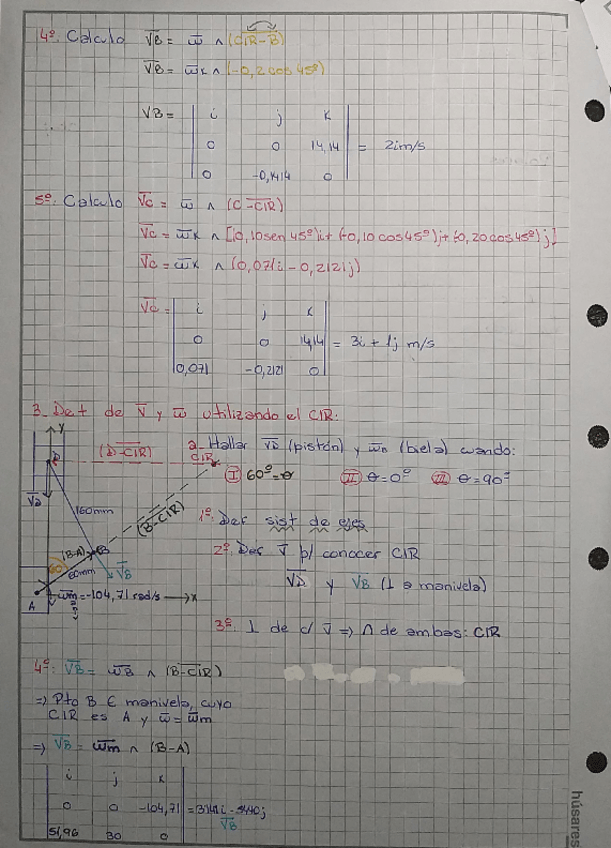 4º. Calculo V̄B = ω̄ ∧ (CIR-B)
V̄B = ω̄k ∧ (-0,2 cos 45º)
VB = | i j k |
| 0 0 14,14 | = 2i m/s
| 0 -0,1414 0 |
5º. Calculo V̄c = ω̄ ∧ (C-CIR)
V̄c = ω̄k ∧ [(0,10 sen 45º)i + (-0,10 cos 45º)j + (-0,20 cos 45º)j]
V̄c = ω̄k ∧ (0,071i - 0,2121j)
V̄c = | i j k |
| 0 0 14,14 | = 3i + 1j m/s
| 0,071 -0,2121 0 |
3_ Det de V̄ y ω̄ utilizando el CIR:
a_ Hallar V̄D (pistón) y ω̄B (biela) cuando:
Ⓘ 60º=θ Ⓘ Ⓘ θ=0º Ⓘ Ⓘ Ⓘ θ=90º
y
D
(D-CIR)
CIR
V̄D
160mm
(B-CIR)
(B-A)
B
60
60mm
V̄B
A
ω̄m = -104,71 rad/s → x
1º. Def sist de ejes
2º. Def V̄ p/ conocer CIR
V̄D y VB (⊥ a manivela)
3º. ⊥ de c/ V̄ => ∩ de ambas: CIR
4º: V̄B = ω̄B ∧ (B-CIR)
=> Pto B ∈ manivela, cuyo
CIR es A y ω̄ = ω̄m
=> V̄B = ω̄m ∧ (B-A)
| i j k |
| 0 0 -104,71 | = 3141i - 5440j
V̄B
| 51,96 30 0 |
húsares